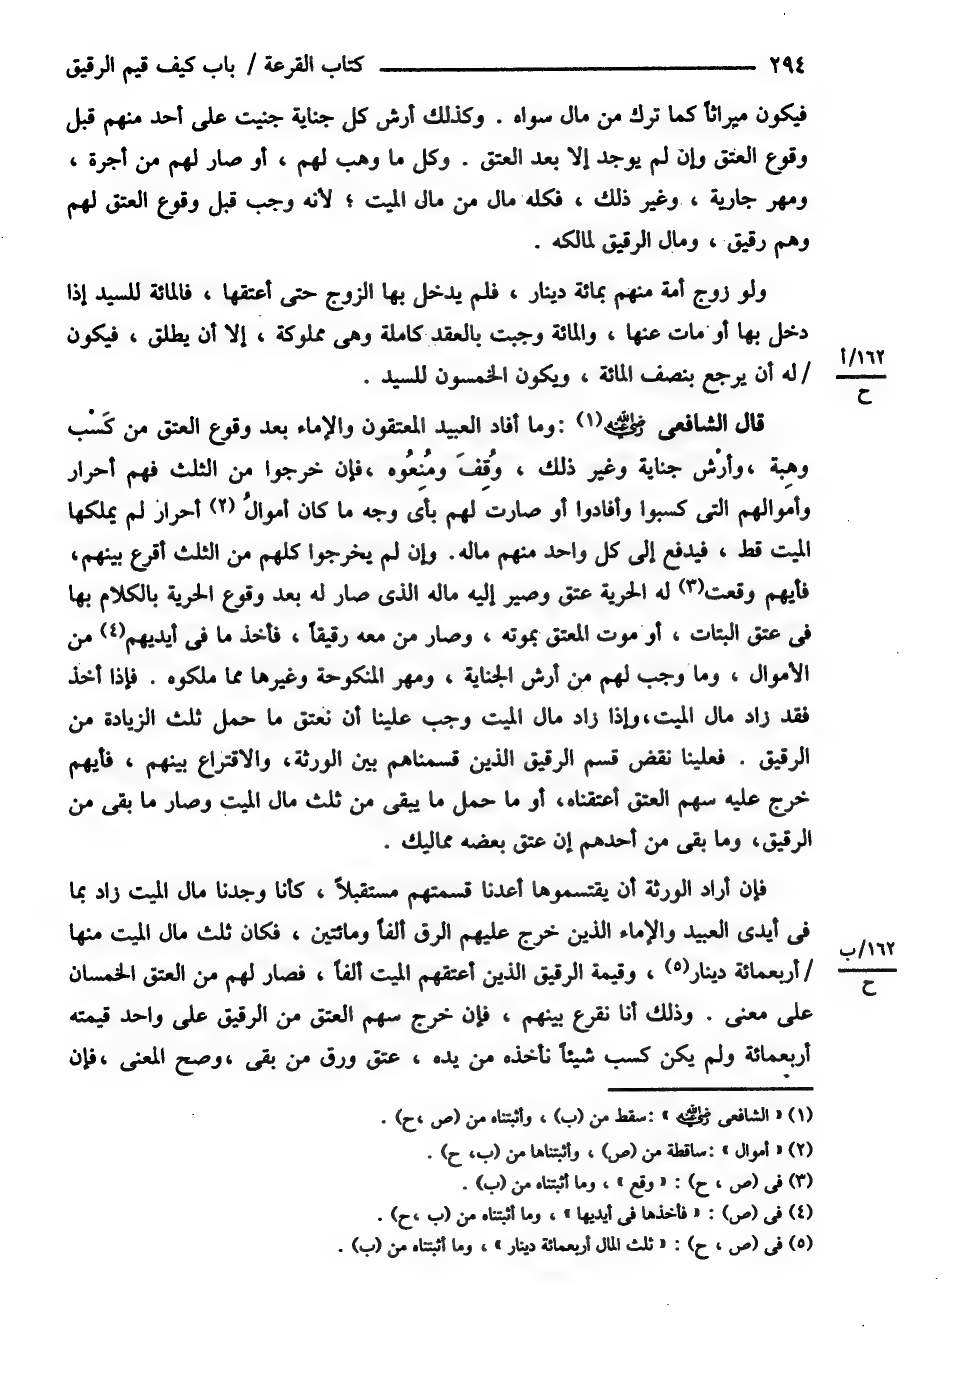 ٢٩٤ كتاب القرعة / باب كيف قيم الرقيق
فيكون ميراثاً كما ترك من مال سواه . وكذلك أرش كل جناية جنيت على أحد منهم قبل
وقوع العتق وإن لم يوجد إلا بعد العتق . وكل ما وهب لهم ، أو صار لهم من أجرة ،
ومهر جارية ، وغير ذلك ، فكله مال من مال الميت ؛ لأنه وجب قبل وقوع العتق لهم
وهم رقيق ، ومال الرقيق لمالكه .
ولو زوج أمة منهم بمائة دينار ، فلم يدخل بها الزوج حتى أعتقها ، فالمائة للسيد إذا
دخل بها أو مات عنها ، والمائة وجبت بالعقد كاملة وهى مملوكة ، إلا أن يطلق ، فيكون
١٦٢/أ
ح
/ له أن يرجع بنصف المائة ، ويكون الخمسون للسيد .
قال الشافعى رضي الله عنه (١) : وما أفاد العبيد المعتقون والإماء بعد وقوع العتق من كَسْب
وهِبة ، وأرْش جناية وغير ذلك ، وُقِفَ ومُنِعُوه ، فإن خرجوا من الثلث فهم أحرار
وأموالهم التى كسبوا وأفادوا أو صارت لهم بأى وجه ما كان أموالُ (٢) أحرار لم يملكها
الميت قط ، فيدفع إلى كل واحد منهم ماله. وإن لم يخرجوا كلهم من الثلث أقرع بينهم،
فأيهم وقعت(٣) له الحرية عتق وصير إليه ماله الذى صار له بعد وقوع الحرية بالكلام بها
فى عتق البتات ، أو موت المعتق بموته ، وصار من معه رقيقاً ، فأخذ ما فى أيديهم(٤) من
الأموال ، وما وجب لهم من أرش الجناية ، ومهر المنكوحة وغيرها مما ملكوه . فإذا أخذ
فقد زاد مال الميت، وإذا زاد مال الميت وجب علينا أن نعتق ما حمل ثلث الزيادة من
الرقيق . فعلينا نقض قسم الرقيق الذين قسمناهم بين الورثة، والاقتراع بينهم ، فأيهم
خرج عليه سهم العتق أعتقناه، أو ما حمل ما يبقى من ثلث مال الميت وصار ما بقى من
الرقيق، وما بقى من أحدهم إن عتق بعضه مماليك .
فإن أراد الورثة أن يقتسموها أعدنا قسمتهم مستقبلاً ، كأنا وجدنا مال الميت زاد بما
فى أيدى العبيد والإماء الذين خرج عليهم الرق ألفاً ومائتين ، فكان ثلث مال الميت منها
١٦٢/ب
ح
/ أربعمائة دينار(٥) ، وقيمة الرقيق الذين أعتقهم الميت ألفاً ، فصار لهم من العتق الخمسان
على معنى . وذلك أنا نقرع بينهم ، فإن خرج سهم العتق من الرقيق على واحد قيمته
أربعمائة ولم يكن كسب شيئاً نأخذه من يده ، عتق ورق من بقى ، وصح المعنى ، فإن
(١) « الشافعى رضي الله عنه » : سقط من (ب) ، وأثبتناه من (ص ، ح) .
(٢) « أموال » : ساقطة من (ص) ، وأثبتناها من (ب، ح) .
(٣) فى (ص ، ح) : « وقع » ، وما أثبتناه من (ب) .
(٤) فى (ص) : « فأخذها فى أيديها » ، وما أثبتناه من (ب ، ح) .
(٥) فى (ص ، ح) : « ثلث المال أربعمائة دينار » ، وما أثبتناه من (ب) .